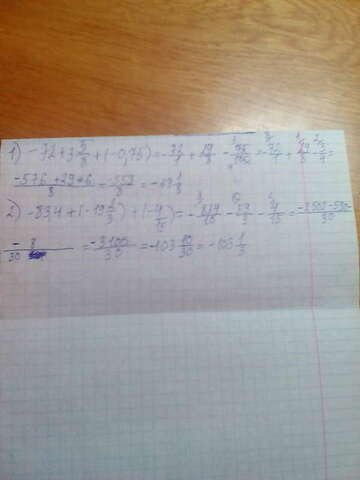 1) -72+3 5/8+(-0,75)=-72/1+29/8-75/100=-72/1+29/8-3/4=
-576+29-6/8=-553/8=-69 1/8
2) -83,4+(-19 2/3)+(-4/15)=-834/10-59/3-4/15=-2502-590-
-8/30=-3100/30=-103 10/30=-103 1/3